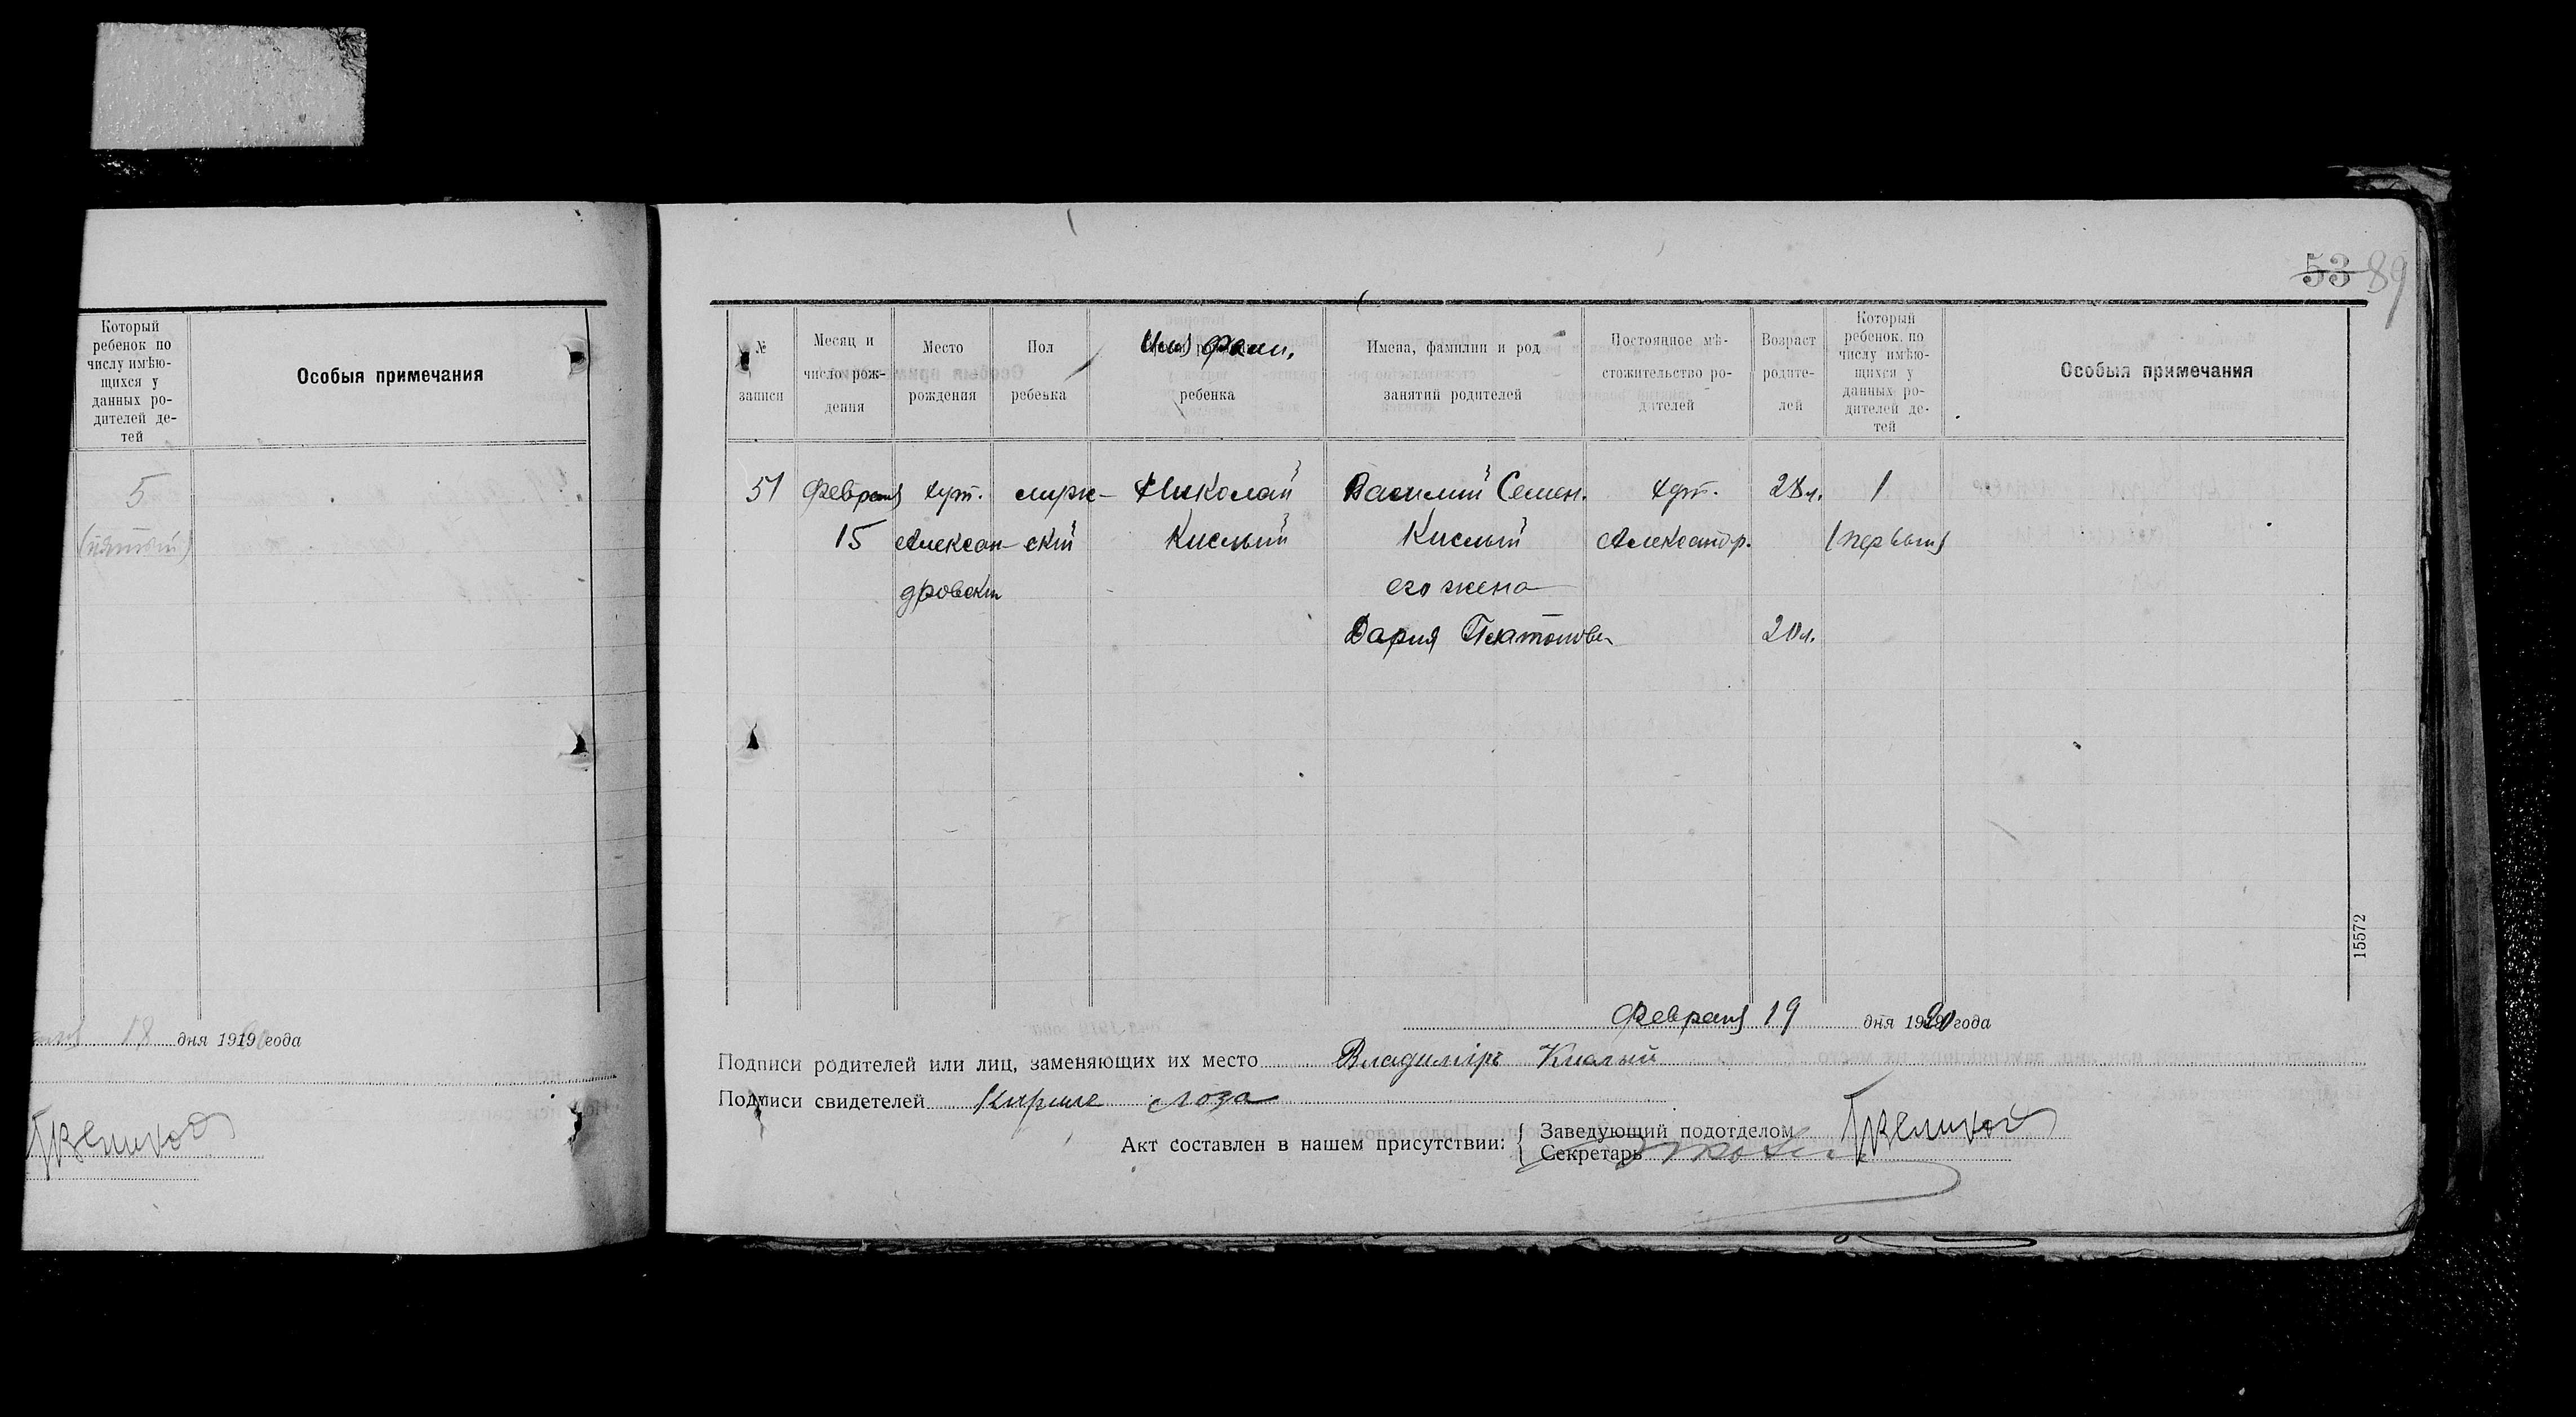 Который
ребенок по
числу имѣю-
щихся у
данных ро-
дителей де-
тей
Особыя примечания
5
(пятый)
18 дня 1919 года
53 89
№
записи
Месяц и
число рож-
дения
Место
рождения
Пол
ребенка
Имя фам.
ребенка
Имена, фамилии и род
занятий родителей
Постоянное мѣ-
стожительство ро-
дителей
Возраст
родите-
лей
Который
ребенок по
числу имѣю-
щихся у
данных ро-
дителей де-
тей
Особыя примечания
51 Февраля хут. мужс- Николай Василий Семен. хут. 28 л. 1
15 Алексан- ский Кислый Кислый Александр. (первый)
дровский его жена
Дария Платонов. 20 л.
15572
Февраля 19 дня 1920 года
Подписи родителей или лиц, заменяющих их место Владимiръ Кислый
Подписи свидетелей Лоза
Акт составлен в нашем присутствии:
Заведующий подотделом
Секретарь